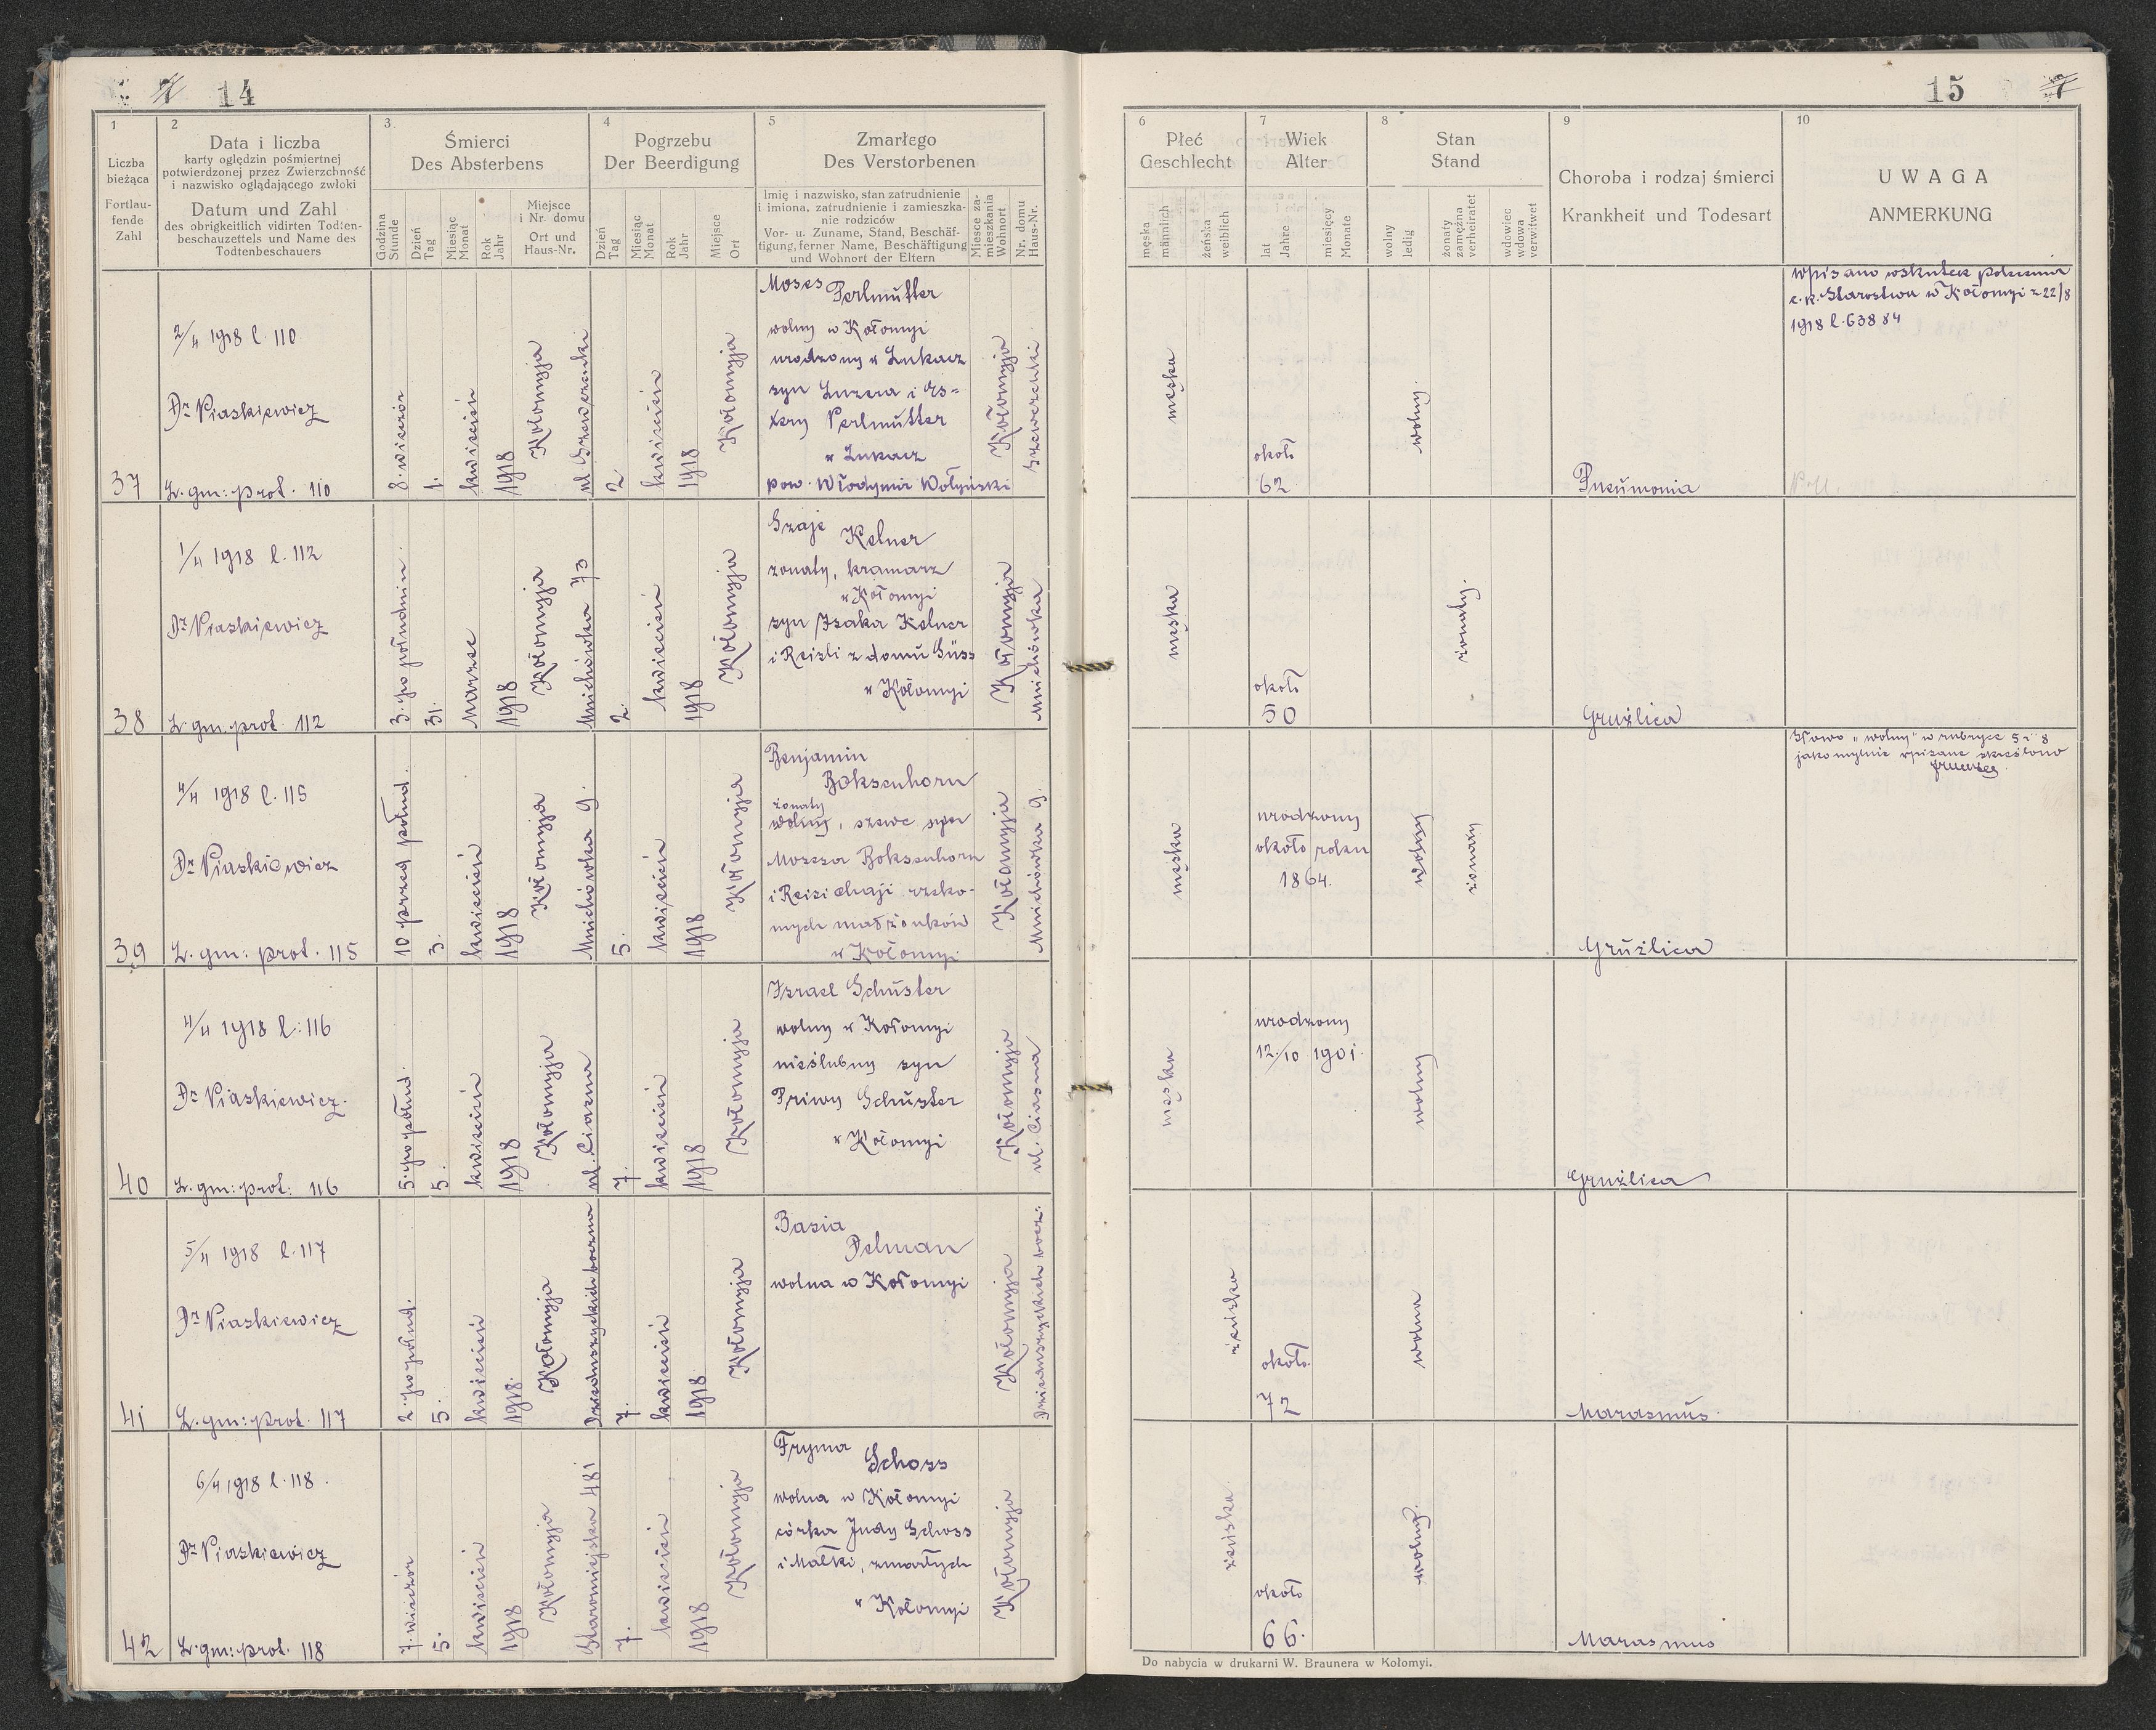 14
1
Liczba
bieżąca
Fortlau-
fende
Zahl
2
Data i liczba
karty oględzin pośmiertnej
potwierdzonej przez Zwierzchność
i nazwisko oglądającego zwłoki
Datum und Zahl
des obrigkeitlich vidirten Todten-
beschauzettels und Name des
Todtenbeschauers
3.
Śmierci
Des Absterbens
Godzina
Stunde
Dzień
Tag
Miesiąc
Monat
Rok
Jahr
Miejsce
i Nr. domu
Ort und
Haus-Nr.
4
Pogrzebu
Der Beerdigung
Dzień
Tag
Miesiąc
Monat
Rok
Jahr
Miejsce
Ort
5
Zmarłego
Des Verstorbenen
Imię i nazwisko, stan zatrudnienie
i imiona, zatrudnienie i zamieszka-
nie rodziców
Vor- u. Zuname, Stand, Beschäf-
tigung, ferner Name, Beschäftigung
und Wohnort der Eltern
Miesce za-
mieszkania
Wohnort
Nr. domu
Haus-Nr.
37
2/4 1918 l. 110
Dr Piaskiewicz
L. gm: prot. 110
8. wieczór
1.
kwiecień
1918
Kołomyja
ul Szewczenki
2
kwiecień
1918
Kołomyja
Moses Perlmutter
wolny w Kołomyi
urodzony w Łukacz
syn Luzera i Es-
tery Perlmutter
w Łukacz
pow. Włodymir Wołyński
Kołomyja
Szewczenki
38
1/4 1918 l. 112
Dr Piaskiewicz
L. gm. prot. 112
3. po południu.
31.
Marzec
1918
Kołomyja
Mnichówka 73
2.
kwiecień
1918
Kołomyja
Szaje Kelner
żonaty, kramarz
w Kołomyi
syn Izaka Kelner
i Reizli z domu Süss
w Kołomyi
Kołomyja
Mnichówka
39
4/4 1918 l. 115
Dr Piaskiewicz
L. gm: prot. 115
10 przed połud.
3.
kwiecień
1918
Kołomyja
Mnichówka 9.
5.
kwiecień
1918
Kołomyja
Benjamin
Boksenhorn
żonaty
wolny, szewc syn
Mozesa Boksenhorn
i Reisi Chaji rzeko-
mych małżonków
w Kołomyi
Kołomyja
Mnichówka 9.
40
4/4 1918 l: 116
Dr Piaskiewicz.
L. gm: prot: 116
5. po połud.
5.
kwiecień
1918
Kołomyja
ul. Ciasna
7.
kwiecień
1918
Kołomyja
Izrael Schuster
wolny w Kołomyi
nieślubny syn
Priwy Schuster
w Kołomyi
Kołomyja
ul. Ciasna
41
5/4 1918 l. 117
Dr Piaskiewicz
L. gm: prot. 117
2. po połud.
5.
kwiecień
1918.
Kołomyja
7.
kwiecień
1918
Kołomyja
Basia
Delman
wolna w Kołomyi
Kołomyja
42
6/4 1918 l. 118.
Dr Piaskiewicz
L. gm: prot. 118
7. wieczór
5.
kwiecień
1918
Kołomyja
Staromiejska 481
7.
kwiecień
1918
Kołomyja
Fryma Schoss
wolna w Kołomyi
córka Judy Schoss
i Małki, zmarłych
w Kołomyi
Kołomyja
15
7
6
Płeć
Geschlecht
męska
männlich
żeńska
weiblich
7
Wiek
Alter
lat
Jahre
miesięcy
Monate
8
Stan
Stand
wolny
ledig
żonaty
zamężna
verheiratet
wdowiec
wdowa
verwitwet
9
Choroba i rodzaj śmierci
Krankheit und Todesart
10
UWAGA
ANMERKUNG
męska
około
62
wolny.
Pneumonia
Wpisano wskutek polecenia
c. k. Starostwa w Kołomyi z 22/8
1918 l. 63884
męska
około
50
żonaty.
Gruźlica
męska
urodzony
około roku
1864.
wolny
żonaty
Gruźlica
Słowo "wolny" w rubryce 5 i 8
jako mylnie wpisane skreślono
męska
urodzony
12./10 1901.
wolny
Gruźlica
żeńska
około.
72
wolna
Marasmus.
żeńska.
około
66.
wolny.
Marasmus
Do nabycia w drukarni W. Braunera w Kołomyi.